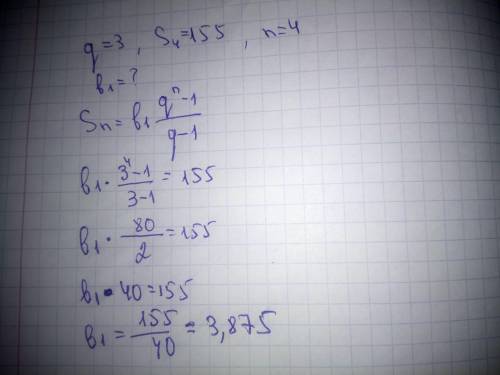 q=3, S₄=155, n=4
b₁=?
Sₙ=b₁ (qⁿ-1)/(q-1)
b₁·(3⁴-1)/(3-1)=155
b₁·80/2=155
b₁·40=155
b₁=155/40=3,875